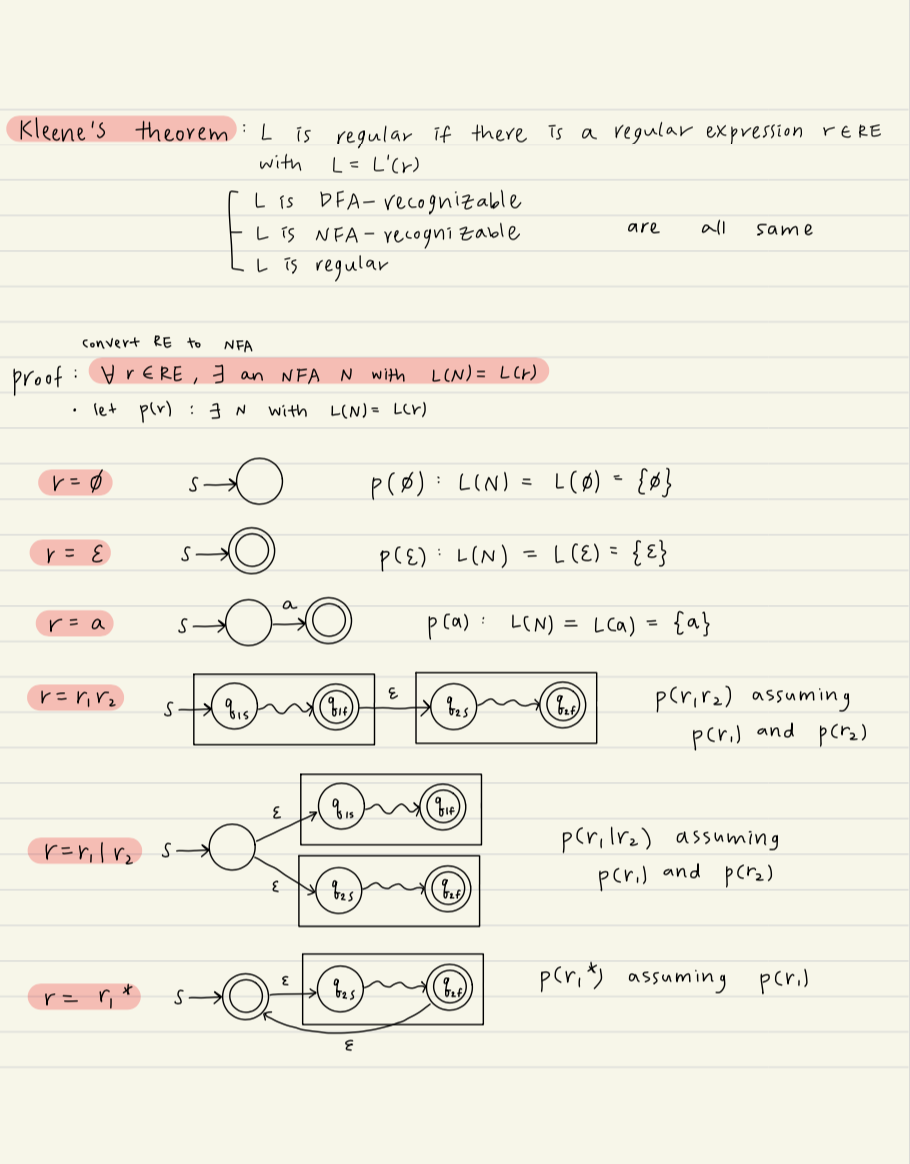 Kleene's theorem : L is regular if there is a regular expression r ∈ RE
with L = L'(r)
L is DFA-recognizable
L is NFA-recognizable are all same
L is regular
convert RE to NFA
proof : ∀ r ∈ RE, ∃ an NFA N with L(N) = L(r)
· let p(r) : ∃ N with L(N) = L(r)
r = ∅ S p(∅) : L(N) = L(∅) = {∅}
r = ε S p(ε) : L(N) = L(ε) = {ε}
r = a S a p(a) : L(N) = L(a) = {a}
r = r₁r₂ S q₁s q₁f ε q₂s q₂f p(r₁r₂) assuming
p(r₁) and p(r₂)
ε q₁s q₁f
r = r₁|r₂ S p(r₁|r₂) assuming
ε q₂s q₂f p(r₁) and p(r₂)
r = r₁* S ε q₂s q₂f p(r₁*) assuming p(r₁)
ε